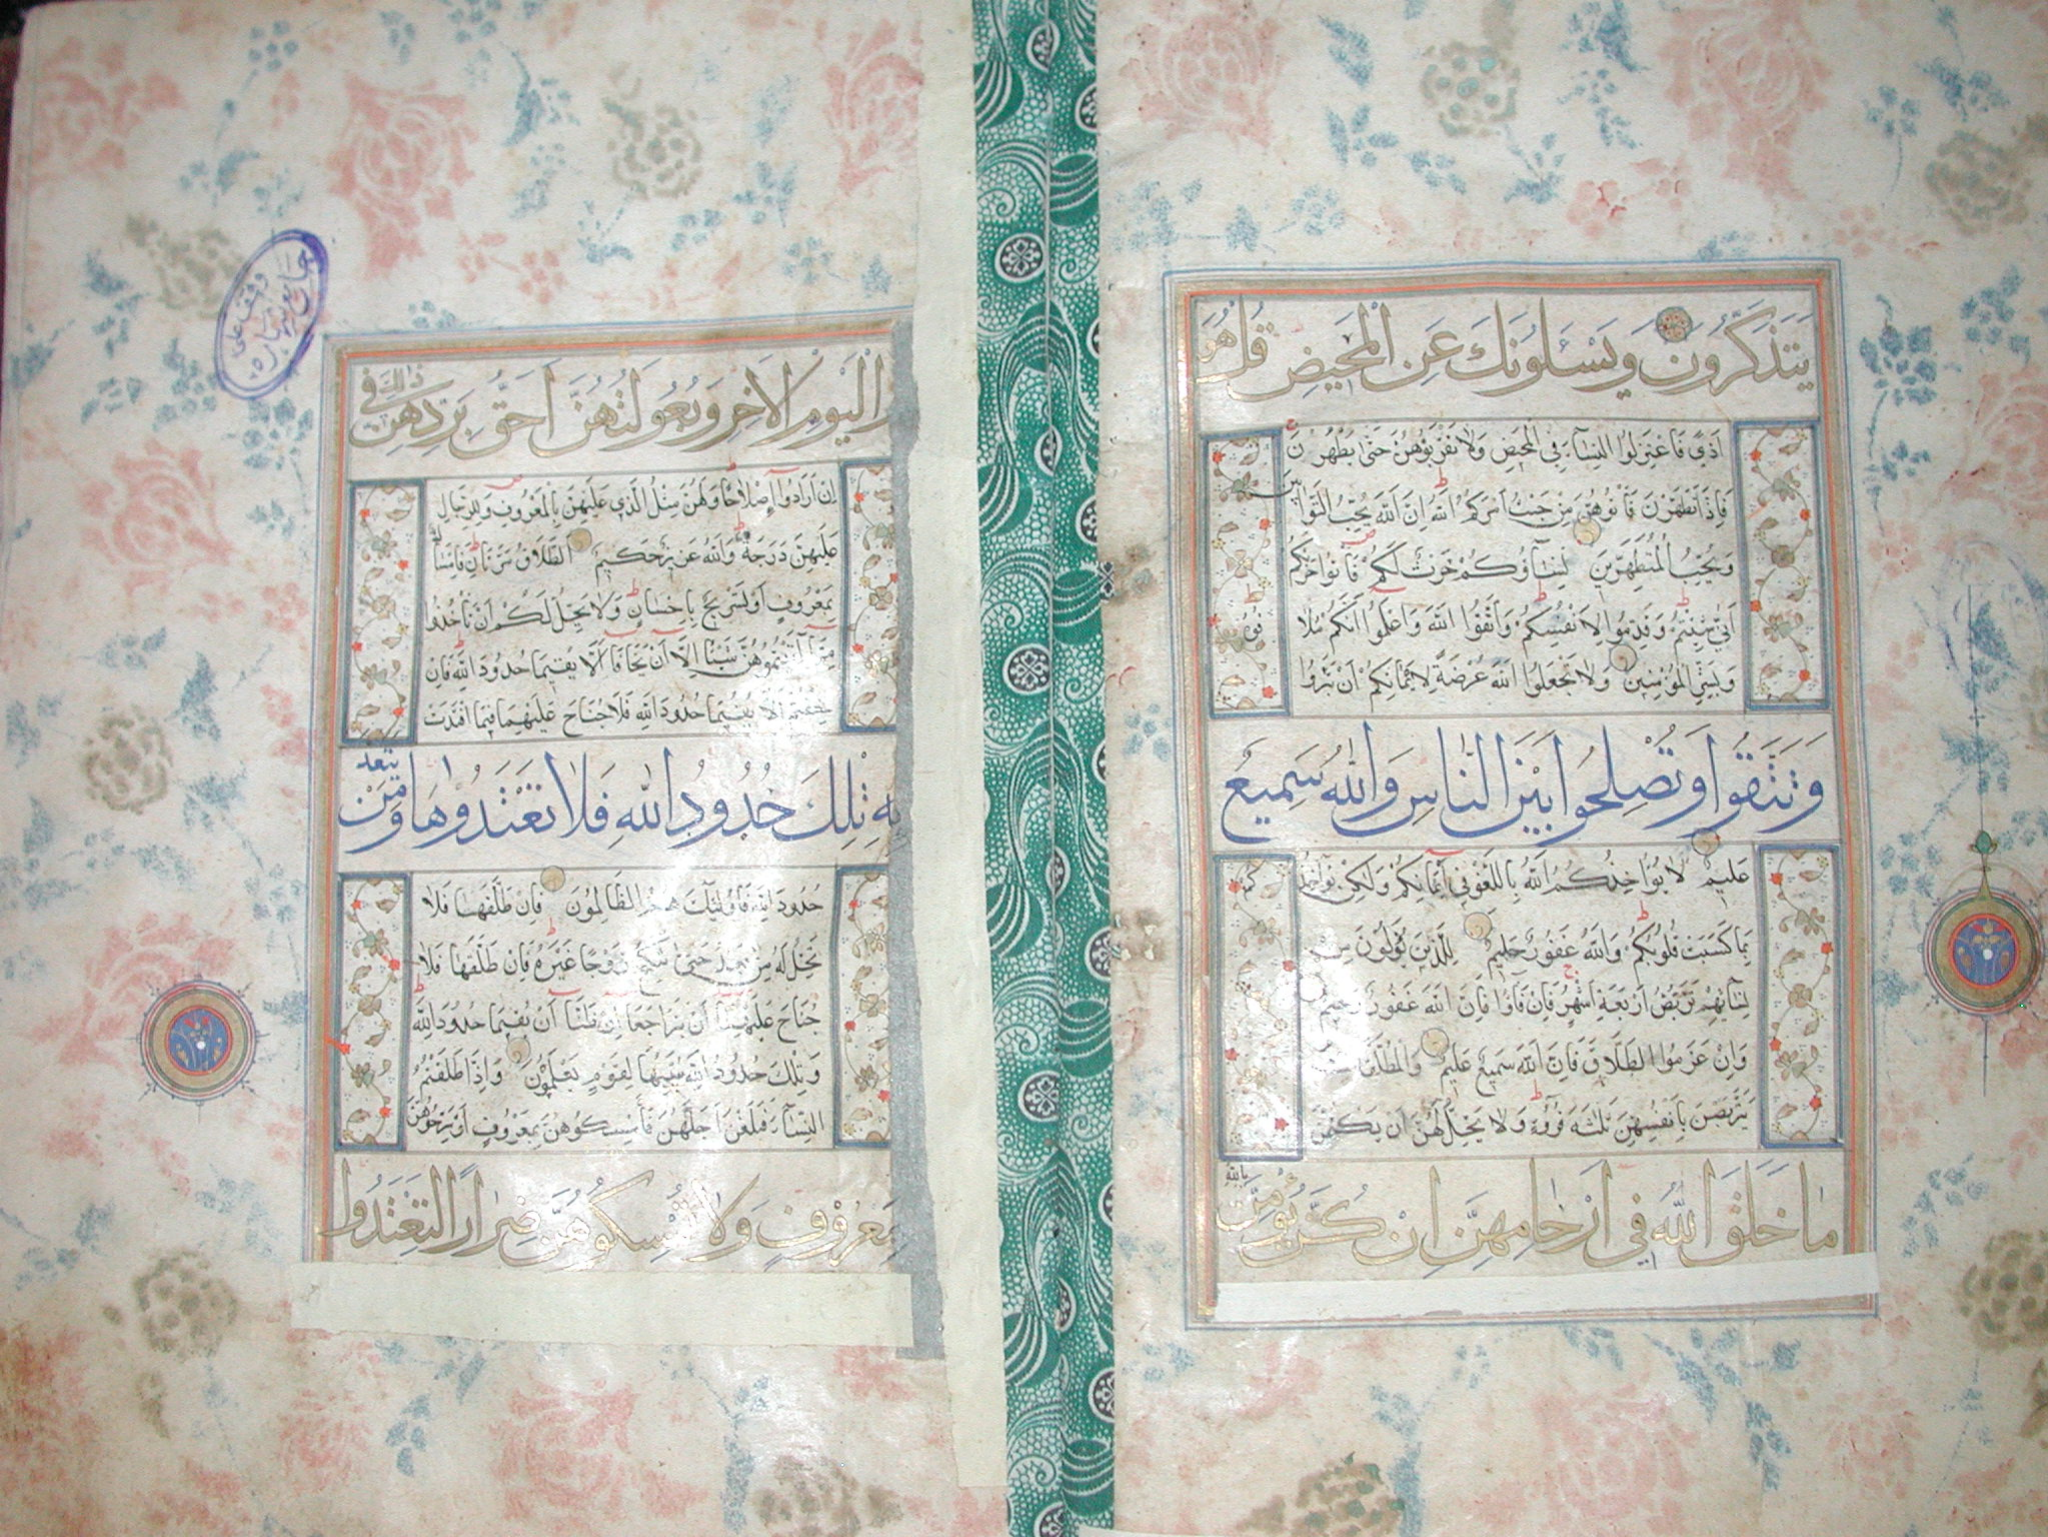 يَتَذَكَّرُونَ وَيَسْـَٔلُونَكَ عَنِ الْمَحِيضِ قُلْ هُوَ
اَذًى فَاعْتَزِلُوا النِّسَآءَ فِي الْمَحِيضِ وَلَا تَقْرَبُوهُنَّ حَتّٰى يَطْهُرْنَ
فَاِذَا تَطَهَّرْنَ فَأْتُوهُنَّ مِنْ حَيْثُ اَمَرَكُمُ اللّٰهُ اِنَّ اللّٰهَ يُحِبُّ التَّوَّابِينَ
وَيُحِبُّ الْمُتَطَهِّرِينَ نِسَآؤُكُمْ حَرْثٌ لَكُمْ فَأْتُوا حَرْثَكُمْ
اَنّٰى شِئْتُمْ وَقَدِّمُوا لِاَنْفُسِكُمْ وَاتَّقُوا اللّٰهَ وَاعْلَمُوا اَنَّكُمْ مُلَاقُوهُ
وَبَشِّرِ الْمُؤْمِنِينَ وَلَا تَجْعَلُوا اللّٰهَ عُرْضَةً لِاَيْمَانِكُمْ اَنْ تَبَرُّوا
وَتَتَّقُوا وَتُصْلِحُوا بَيْنَ النَّاسِ وَاللّٰهُ سَمِيعٌ
عَلِيمٌ لَا يُؤَاخِذُكُمُ اللّٰهُ بِاللَّغْوِ فِي اَيْمَانِكُمْ وَلٰكِنْ يُؤَاخِذُكُمْ
بِمَا كَسَبَتْ قُلُوبُكُمْ وَاللّٰهُ غَفُورٌ حَلِيمٌ لِلَّذِينَ يُؤْلُونَ مِنْ
نِسَآئِهِمْ تَرَبُّصُ اَرْبَعَةِ اَشْهُرٍ فَاِنْ فَآؤُا فَاِنَّ اللّٰهَ غَفُورٌ رَحِيمٌ
وَاِنْ عَزَمُوا الطَّلَاقَ فَاِنَّ اللّٰهَ سَمِيعٌ عَلِيمٌ وَالْمُطَلَّقَاتُ
يَتَرَبَّصْنَ بِاَنْفُسِهِنَّ ثَلٰثَةَ قُرُوٓءٍ وَلَا يَحِلُّ لَهُنَّ اَنْ يَكْتُمْنَ
مَا خَلَقَ اللّٰهُ فِي اَرْحَامِهِنَّ اِنْ كُنَّ يُؤْمِنَّ بِاللّٰهِ
وقف على
الْيَوْمِ الْاٰخِرِ وَبُعُولَتُهُنَّ اَحَقُّ بِرَدِّهِنَّ فِي ذٰلِكَ
اِنْ اَرَادُوٓا اِصْلَاحًا وَلَهُنَّ مِثْلُ الَّذِي عَلَيْهِنَّ بِالْمَعْرُوفِ وَلِلرِّجَالِ
عَلَيْهِنَّ دَرَجَةٌ وَاللّٰهُ عَزِيزٌ حَكِيمٌ اَلطَّلَاقُ مَرَّتَانِ فَاِمْسَاكٌ
بِمَعْرُوفٍ اَوْ تَسْرِيحٌ بِاِحْسَانٍ وَلَا يَحِلُّ لَكُمْ اَنْ تَأْخُذُوا
مِمَّآ اٰتَيْتُمُوهُنَّ شَيْـًٔا اِلَّآ اَنْ يَخَافَآ اَلَّا يُقِيمَا حُدُودَ اللّٰهِ فَاِنْ
خِفْتُمْ اَلَّا يُقِيمَا حُدُودَ اللّٰهِ فَلَا جُنَاحَ عَلَيْهِمَا فِيمَا افْتَدَتْ
بِهٖ تِلْكَ حُدُودُ اللّٰهِ فَلَا تَعْتَدُوهَا وَمَنْ يَتَعَدَّ
حُدُودَ اللّٰهِ فَاُولٰٓئِكَ هُمُ الظَّالِمُونَ فَاِنْ طَلَّقَهَا فَلَا
تَحِلُّ لَهُ مِنْ بَعْدُ حَتّٰى تَنْكِحَ زَوْجًا غَيْرَهُ فَاِنْ طَلَّقَهَا فَلَا
جُنَاحَ عَلَيْهِمَآ اَنْ يَتَرَاجَعَآ اِنْ ظَنَّآ اَنْ يُقِيمَا حُدُودَ اللّٰهِ
وَتِلْكَ حُدُودُ اللّٰهِ يُبَيِّنُهَا لِقَوْمٍ يَعْلَمُونَ وَاِذَا طَلَّقْتُمُ
النِّسَآءَ فَبَلَغْنَ اَجَلَهُنَّ فَاَمْسِكُوهُنَّ بِمَعْرُوفٍ اَوْ سَرِّحُوهُنَّ
بِمَعْرُوفٍ وَلَا تُمْسِكُوهُنَّ ضِرَارًا لِتَعْتَدُوا